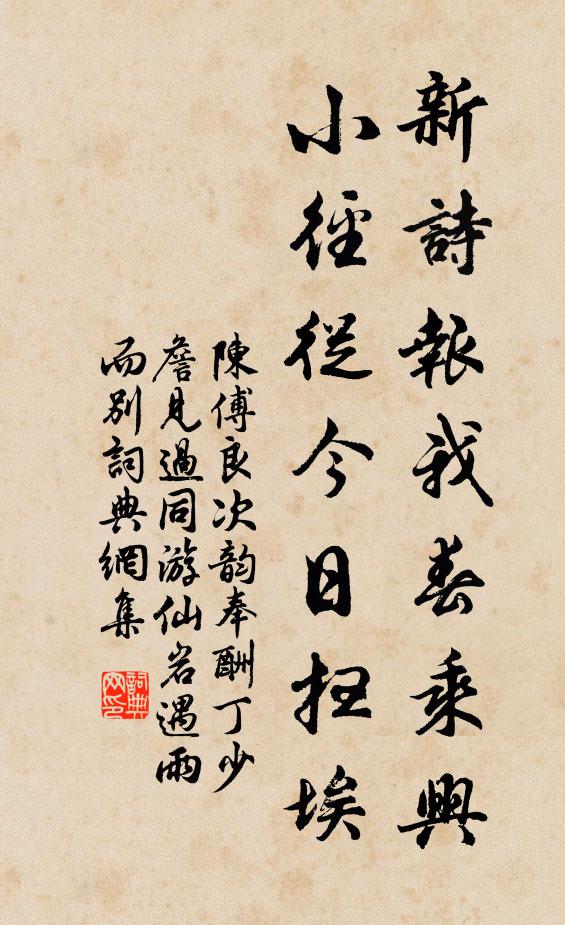 新詩報我春乘興
小徑從今日掃埃
陳傅良次韵奉酬丁少
詹見過同游仙岩遇雨
而別詞典網集
詞典
网印